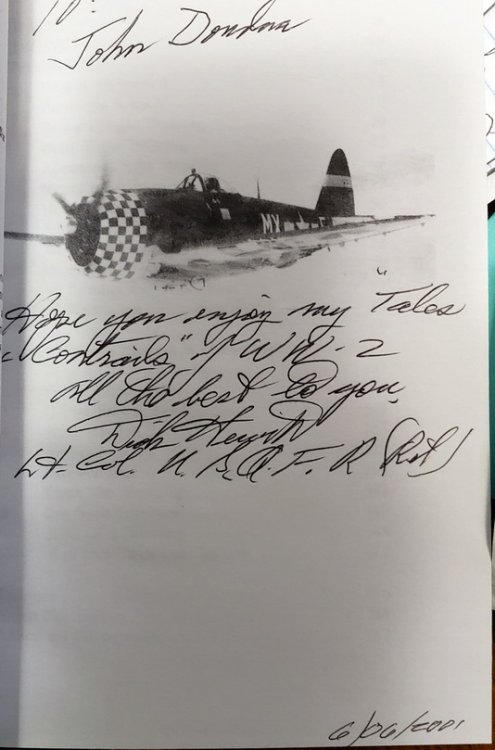 To:
John
MX
Hope you enjoy my "Tales
& Contrails" of WW-2
All the best to you,
Dick Hewitt
Lt. Col. U.S.A.F. R (Ret)
6/06/2001